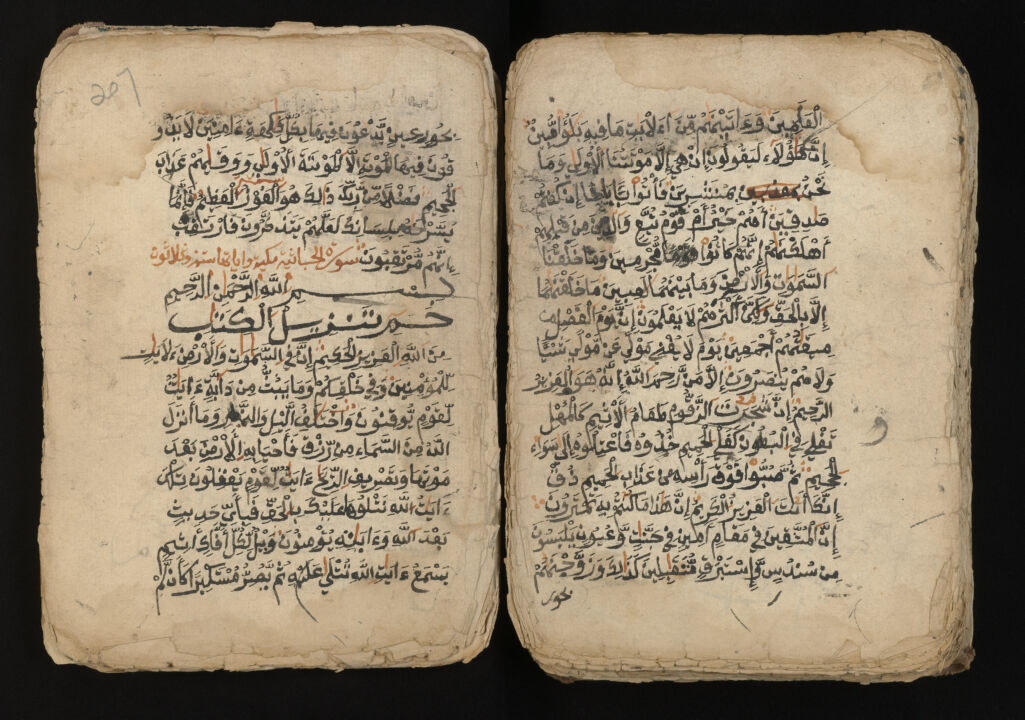 الْعَٰلَمِينَ وَءَاتَيْنَٰهُم مِّنَ اَءَلَايَٰتِ مَا فِيهِ بَلَٰٓؤٌا مُّبِينٌ
اِنَّ هَٰٓؤُلَآءِ لَيَقُولُونَ إِنْ هِيَ إِلَّا مَوْتَتُنَا الْأُولَىٰ وَمَا
نَحْنُ بِمُنشَرِينَ فَأْتُوا بِـَٔابَآئِنَا إِن كُنتُمْ
صَٰدِقِينَ أَهُمْ خَيْرٌ أَمْ قَوْمُ تُبَّعٍ وَالَّذِينَ مِن قَبْلِهِمْ
أَهْلَكْنَٰهُمْ إِنَّهُمْ كَانُوا مُجْرِمِينَ وَمَا خَلَقْنَا
السَّمَٰوَٰتِ وَالْأَرْضَ وَمَا بَيْنَهُمَا لَٰعِبِينَ مَا خَلَقْنَٰهُمَا
إِلَّا بِالْحَقِّ وَلَٰكِنَّ أَكْثَرَهُمْ لَا يَعْلَمُونَ إِنَّ يَوْمَ الْفَصْلِ
مِيقَٰتُهُمُ أَجْمَعِينَ يَوْمَ لَا يُغْنِي مَوْلًى عَن مَّوْلًى شَيْـًٔا
وَلَا هُمْ يُنصَرُونَ إِلَّا مَن رَّحِمَ اللَّهُ إِنَّهُ هُوَ الْعَزِيزُ
الرَّحِيمُ إِنَّ شَجَرَتَ الزَّقُّومِ طَعَامُ الْأَثِيمِ كَالْمُهْلِ
تَغْلِي فِي الْبُطُونِ كَغَلْيِ الْحَمِيمِ خُذُوهُ فَاعْتِلُوهُ إِلَىٰ سَوَآءِ
الْجَحِيمِ ثُمَّ صُبُّوا فَوْقَ رَأْسِهِ مِنْ عَذَابِ الْحَمِيمِ ذُقْ
إِنَّكَ أَنتَ الْعَزِيزُ الْكَرِيمُ إِنَّ هَٰذَا مَا كُنتُم بِهِ تَمْتَرُونَ
إِنَّ الْمُتَّقِينَ فِي مَقَامٍ أَمِينٍ فِي جَنَّٰتٍ وَعُيُونٍ يَلْبَسُونَ
مِن سُندُسٍ وَإِسْتَبْرَقٍ مُّتَقَٰبِلِينَ كَذَٰلِكَ وَزَوَّجْنَٰهُمْ
بحور
207
بِحُورٍ عِينٍ يَدْعُونَ فِيهَا بِكُلِّ فَٰكِهَةٍ ءَامِنِينَ لَا يَذُو
قُونَ فِيهَا الْمَوْتَ إِلَّا الْمَوْتَةَ الْأُولَىٰ وَوَقَىٰهُمْ عَذَابَ
الْجَحِيمِ فَضْلًا مِّن رَّبِّكَ ذَٰلِكَ هُوَ الْفَوْزُ الْعَظِيمُ فَإِنَّمَا
يَسَّرْنَٰهُ بِلِسَانِكَ لَعَلَّهُمْ يَتَذَكَّرُونَ فَارْتَقِبْ
إِنَّهُم مُّرْتَقِبُونَ سورة الجاثية مكية واياتها ست وثلاثون
بسم اللَّهِ الرَّحْمَٰنِ الرَّحِيمِ
حم تَنزِيلُ الْكِتَٰبِ
مِنَ اللَّهِ الْعَزِيزِ الْحَكِيمِ إِنَّ فِي السَّمَٰوَٰتِ وَالْأَرْضِ ءَلَايَٰتٍ
لِّلْمُؤْمِنِينَ وَفِي خَلْقِكُمْ وَمَا يَبُثُّ مِن دَآبَّةٍ ءَايَٰتٌ
لِّقَوْمٍ يُوقِنُونَ وَاخْتِلَٰفِ الَّيْلِ وَالنَّهَارِ وَمَآ أَنزَلَ
اللَّهُ مِنَ السَّمَآءِ مِن رِّزْقٍ فَأَحْيَا بِهِ الْأَرْضَ بَعْدَ
مَوْتِهَا وَتَصْرِيفِ الرِّيَٰحِ ءَايَٰتٌ لِّقَوْمٍ يَعْقِلُونَ تِلْكَ
ءَايَٰتُ اللَّهِ نَتْلُوهَا عَلَيْكَ بِالْحَقِّ فَبِأَيِّ حَدِيثٍ
بَعْدَ اللَّهِ وَءَايَٰتِهِ يُؤْمِنُونَ وَيْلٌ لِّكُلِّ أَفَّاكٍ أَثِيمٍ
يَسْمَعُ ءَايَٰتِ اللَّهِ تُتْلَىٰ عَلَيْهِ ثُمَّ يُصِرُّ مُسْتَكْبِرًا كَأَن لَّمْ